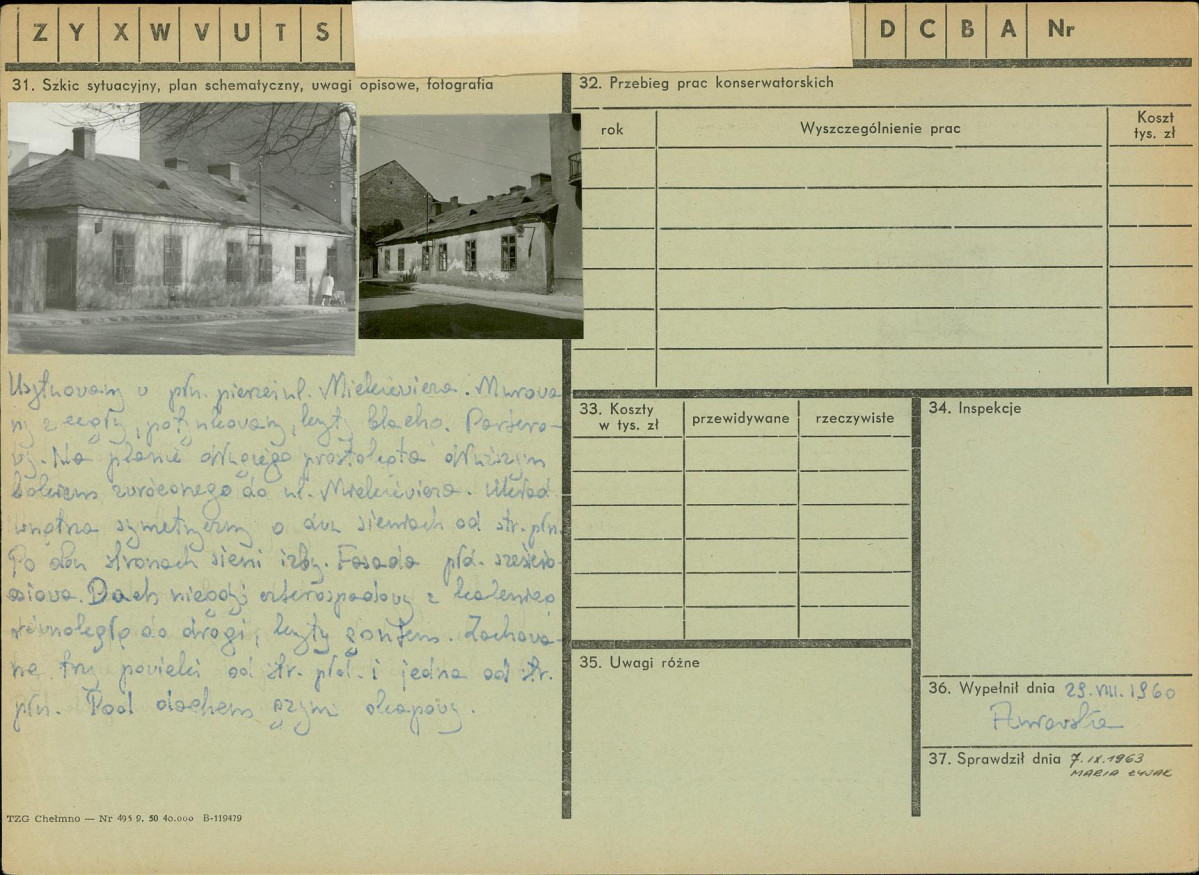 Z Y X W V U T S D C B A Nr
31. Szkic sytuacyjny, plan schematyczny, uwagi opisowe, fotografia
Usytuowany w płn. pierzei ul. Mickiewicza. Murowa
ny z cegły, potynkowany, kryty blachą. Partero-
wy. Na planie długiego prostokąta dłuższym
bokiem zwróconego do ul. Mickiewicza. Układ
wnętrza symetryczny o dwu sieniach od str. płn.
Po obu stronach sieni izby. Fasada płd. sześcio-
osiowa. Dach niegdyś czterospadowy z kalenicą
równoległą do drogi, kryty gontem. Zachowa-
ne trzy powieki od str. płd. i jedna od str.
płn. Pod dachem gzyms okapowy.
TZG Chełmno — Nr 495 9. 50 40.000 B-119479
32. Przebieg prac konserwatorskich
rok Wyszczególnienie prac Koszt
tys. zł
33. Koszty
w tys. zł przewidywane rzeczywiste
34. Inspekcje
35. Uwagi różne
36. Wypełnił dnia 29.VIII.1960
37. Sprawdził dnia 7.IX.1963
MARIA